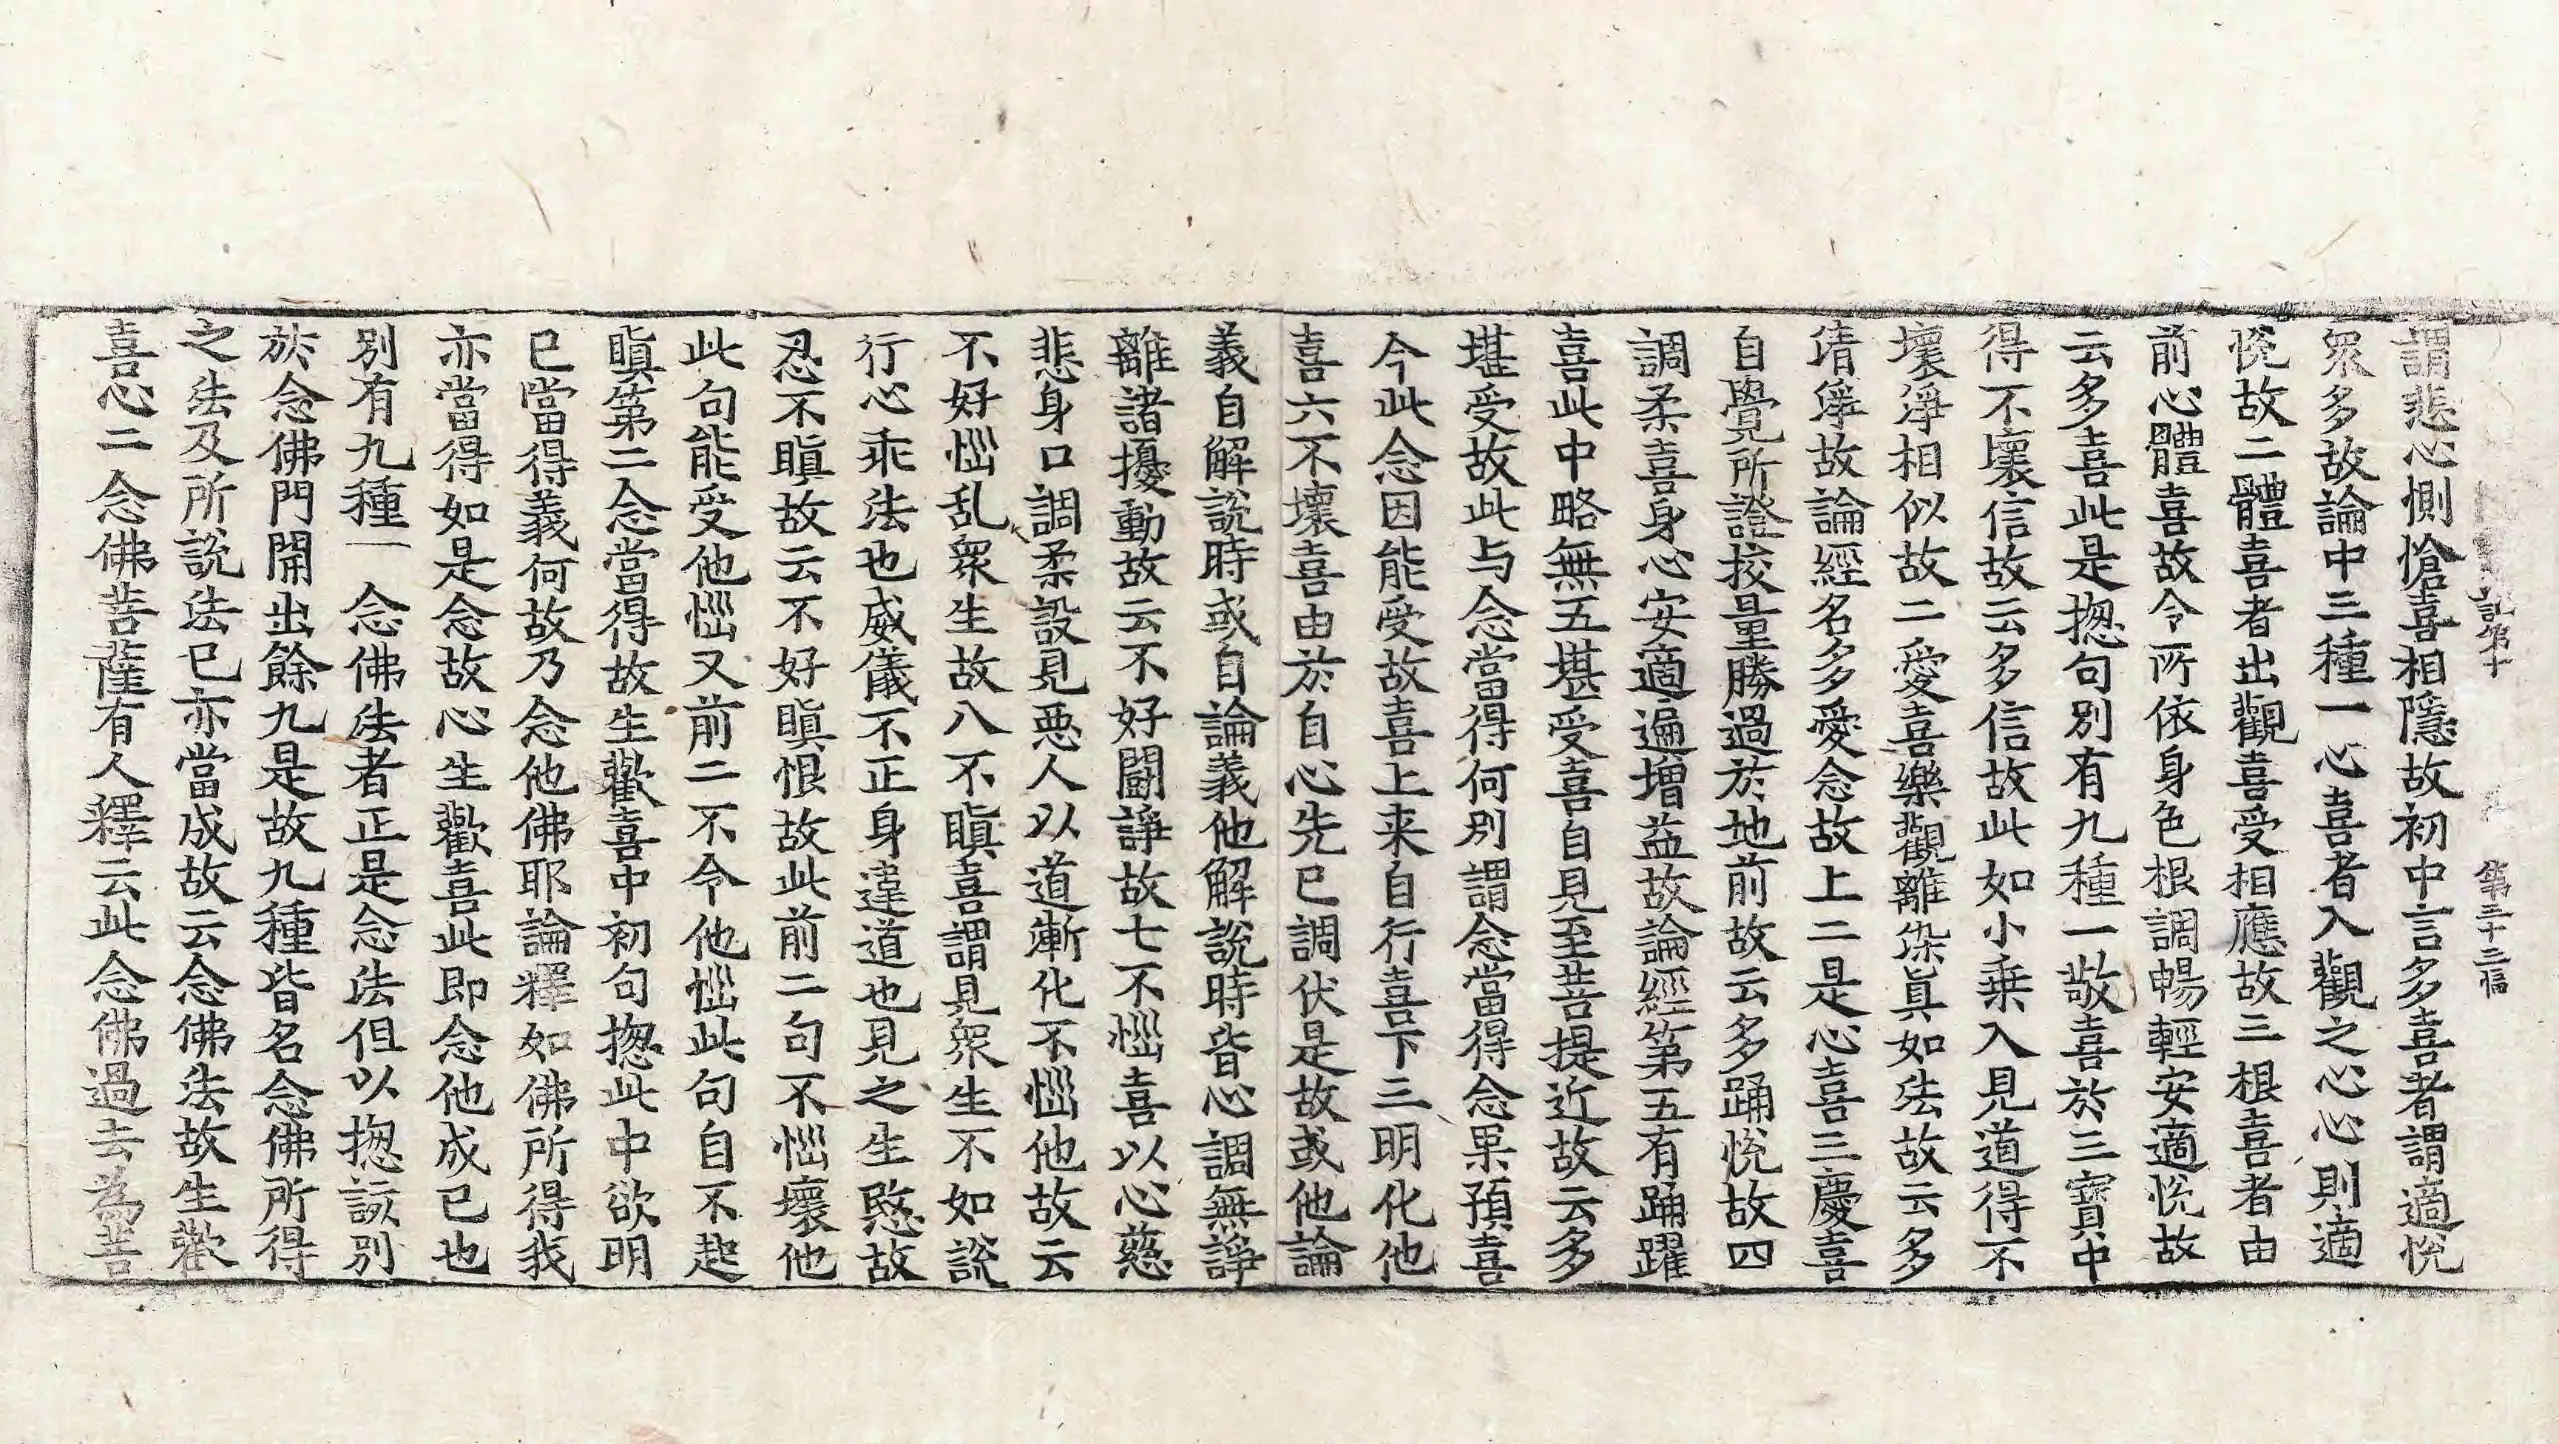 記第十 第三十三幅
謂悲心惻愴喜相隱故初中言多喜者謂適悅
衆多故論中三種一心喜者入觀之心心則適
悅故二體喜者出觀喜受相應故三根喜者由
前心體喜故令所依身色根調暢輕安適悅故
云多喜此是揔句別有九種一敬喜於三寶中
得不壞信故云多信故此如小乘入見道得不
壞淨相似故二愛喜樂觀離染眞如法故云多
清淨故論經名多愛念故上二是心喜三慶喜
自覺所證挍量勝過於地前故云多踊悅故四
調柔喜身心安適遍增益故論經第五有踊躍
喜此中略無五堪受喜自見至菩提近故云多
堪受故此与念當得何別謂念當得念果預喜
今此念因能受故喜上来自行喜下三明化他
喜六不壞喜由於自心先已調伏是故或他論
義自解說時或自論義他解說時皆心調無諍
離諸擾動故云不好鬪諍故七不惱喜以心慈
悲身口調柔設見惡人以道漸化不惱他故云
不好惱乱衆生故八不瞋喜謂見衆生不如說
行心乖法也威儀不正身違道也見之生愍故
忍不瞋故云不好瞋恨故此前二句不惱壞他
此句能受他惱又前二不令他惱此句自不起
瞋第二念當得故生歡喜中初句揔此中欲明
已當得義何故乃念他佛耶論釋如佛所得我
亦當得如是念故心生歡喜此即念他成已也
別有九種一念佛法者正是念法但以揔該別
於念佛門開出餘九是故九種皆名念佛所得
之法及所說法已亦當成故云念佛法故生歡
喜心二念佛菩薩有人釋云此念佛過去為菩